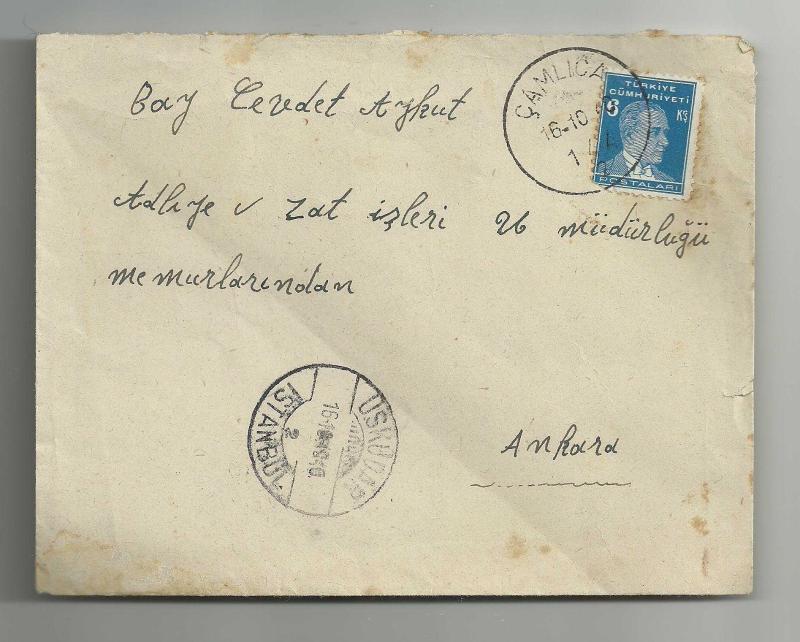 Bay Cevdet Aykut
Adliye v zat işleri 26 müdürlüğü
memurlarından
Ankara
ÇAMLICA
16-10
TÜRKİYE
CÜMHURİYETİ
6 KŞ
POSTALARI
ÜSKÜDAR
İSTANBUL
2